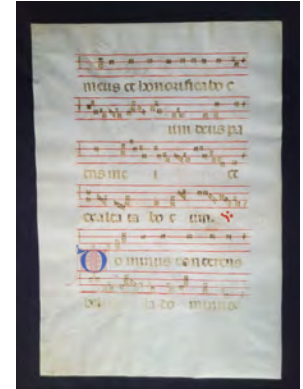 meus et honorificabo e
um deus pa
tris me i et
exalta ta bo e um.
Dominus conterens
bel la do minus